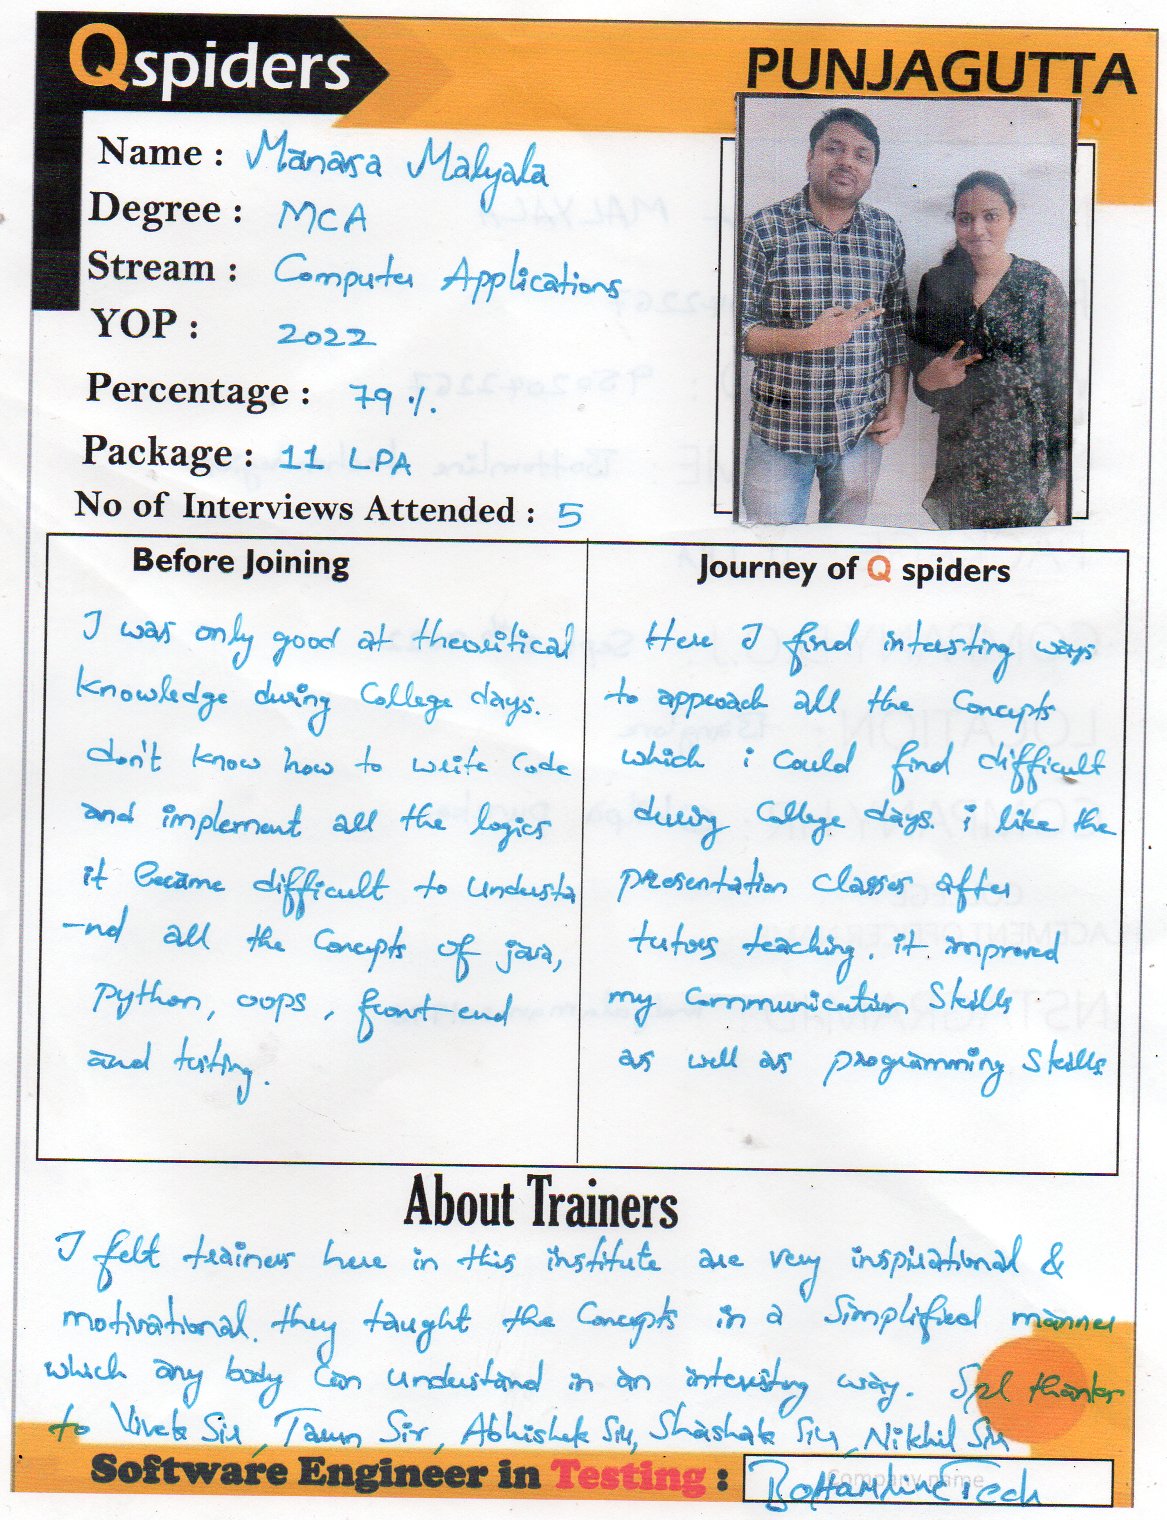 Qspiders
PUNJAGUTTA
Name : Manasa Malyala
Degree : MCA
Stream : Computer Applications
YOP : 2022
Percentage : 79 %.
Package : 11 LPA
No of Interviews Attended : 5
Before Joining
I was only good at theoritical
knowledge during College days.
don't know how to write Code
and implement all the logics
it became difficult to understa
-nd all the Concepts of java,
python, oops, front-end
and testing.
Journey of Q spiders
Here I find intersting ways
to approach all the Concepts
which i Could find difficult
during College days. i like the
presentation classes after
tutors teaching. it improved
my Communication Skills
as well as programming Skills
About Trainers
I felt trainers here in this institute are very inspirational &
motivational. they taught the Concepts in a Simplified manner
which any body Can understand in an interesting way. Spl thanks
to Vivek Sir, Tarun Sir, Abhishek Sir, Shashak Sir, Nikhil Sir
Software Engineer in Testing : BottamlineTech
Company name